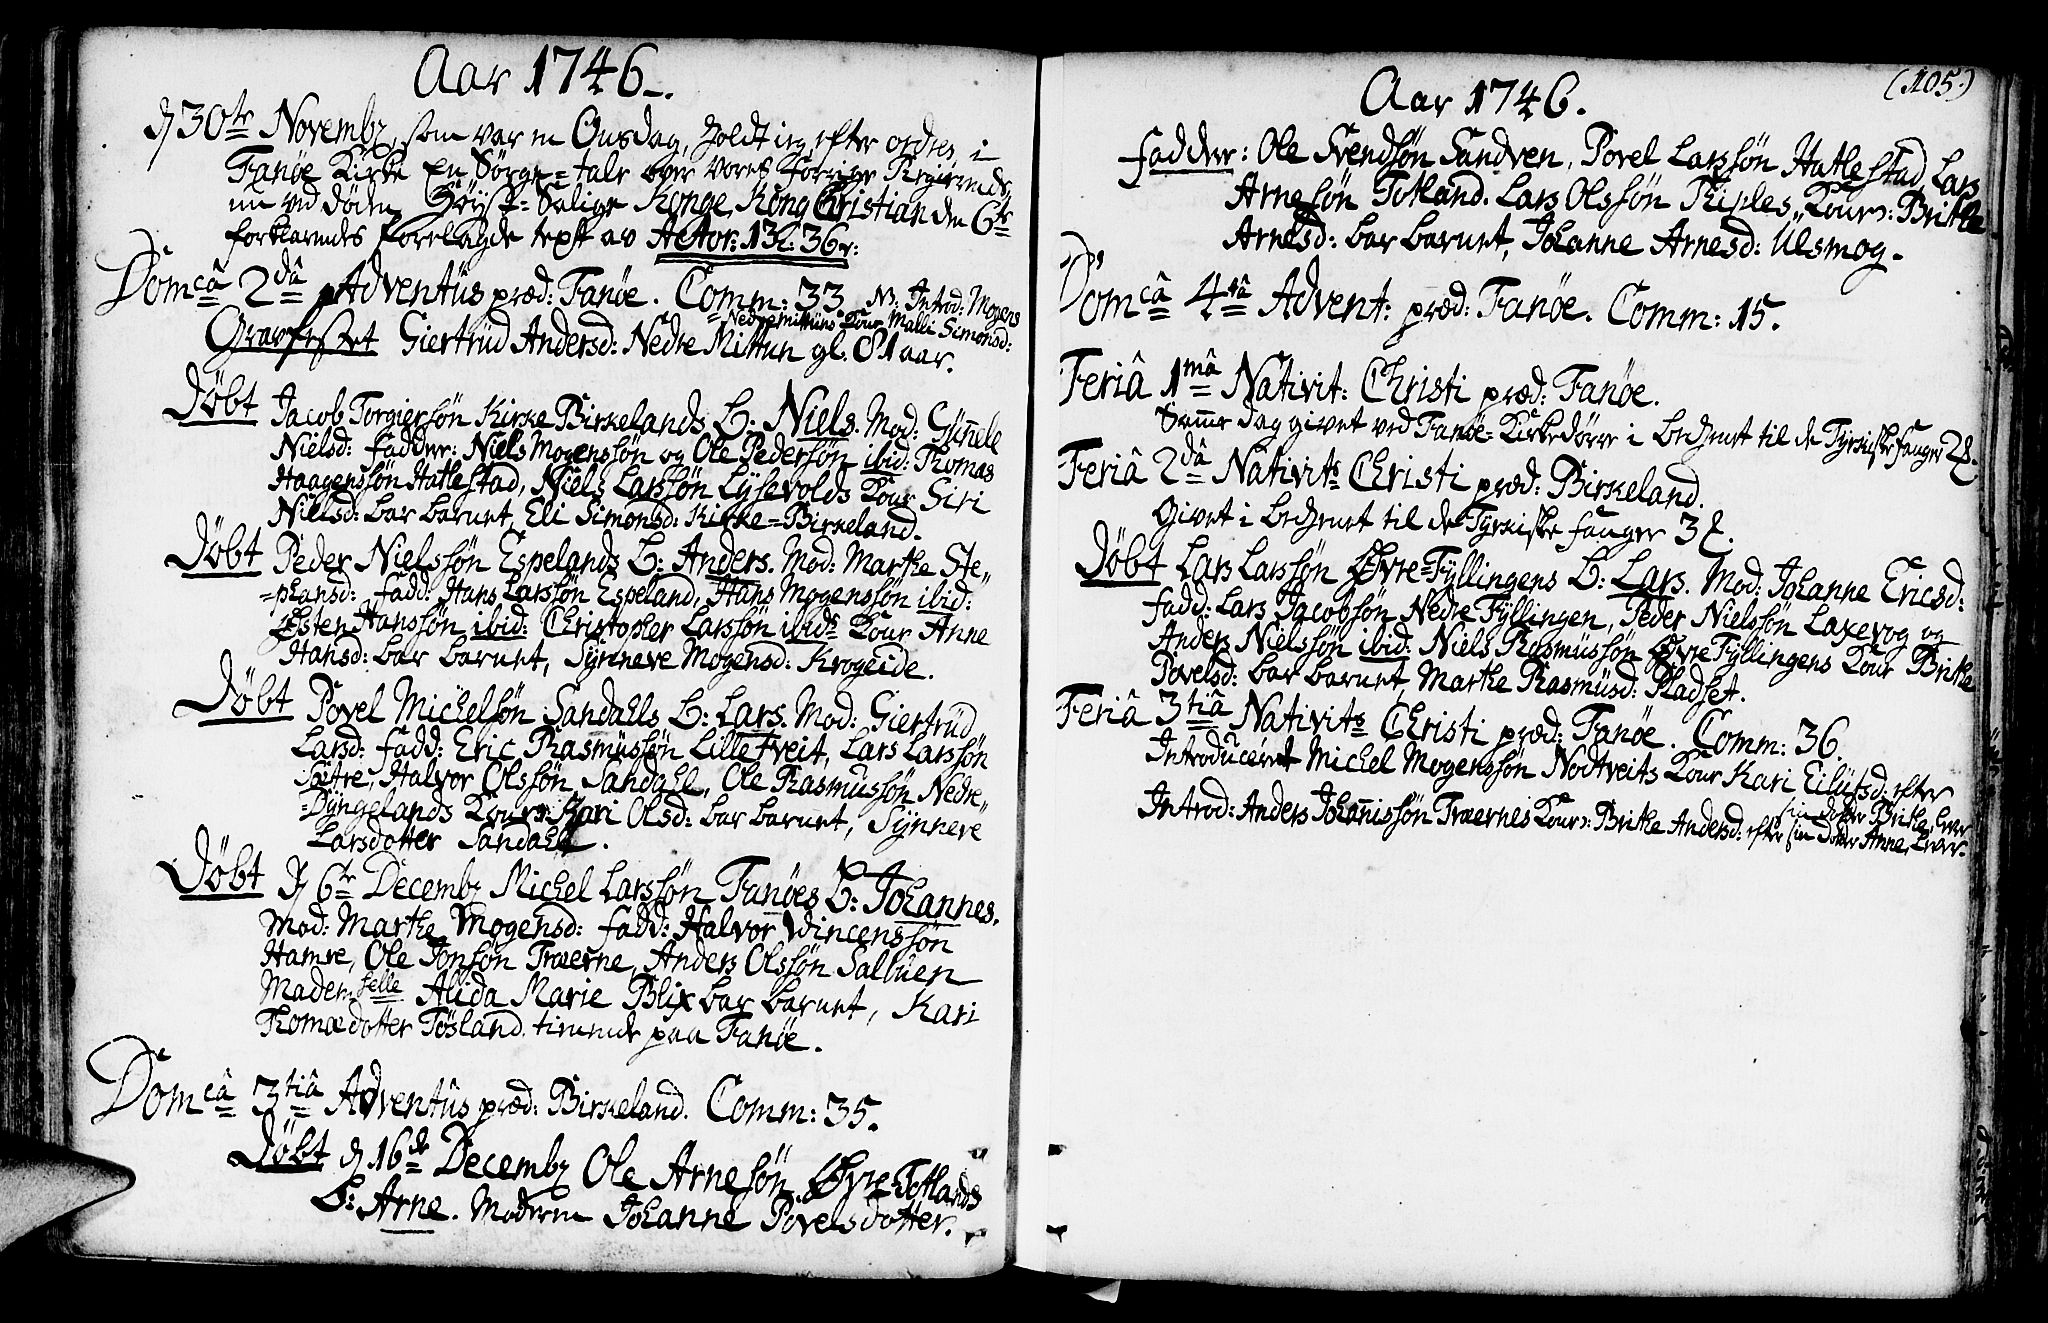 Aar 1746.
d 30te Novembr, som var en Onsdag, holdt ieg efter ordre, i
Fanøe Kirke En Sørge=tale over vores Forrige Regierende,
nu ved Døden Høyst=Salige Konge, Kong Christian den 6te
forklarendes forelagde text av Actor: 13: 36v:
Domcâ 2dâ Adventûs præd: Fanøe. Comm: 33. NB: Introd: Mogens
Nedremittuns Kone Malli Simonsd:
Gravfestet Giertrud Andersd: Nedre Mittun gl. 81 aar.
Døbt Jacob Torgiersøn Kirke Birkelands B: Niels. Mod: Gunnele
Nielsd: fadder: Niels Mogenssøn og Ole Pedersøn ibid: Thomas
Haagenssøn Hatlestad, Niels Larssøn Lysevolds Kone Siri
Nielsd: bar barnet, Eli Simonsd: Kirke=Birkeland.
Døbt Peder Nielssøn Espelands B: Anders. Mod: Marthe Ste„
=phansd: fadd: Hans Larssøn Espeland, Hans Mogenssøn ibid:
Østen Hanssøn ibid: Christopher Larssøn ibids Kone Anne
Hansd: bar barnet, Synneve Mogensd: Krogeide.
Døbt Povel Michelsøn Sandahls B: Lars. Mod: Giertrud
Larsd: fadd: Eric Rasmussøn Lilletveit, Lars Larssøn
Sætre, Halvor Olssøn Sandahl, Ole Rasmussøn Nedre„
=Dyngelands Kone Kari Olsd: bar barnet, Synneve
Larsdotter Sandahl.
Døbt d 6te Decembr Michel Larssøn Fanøes B: Johannes.
Mod: Marthe Mogensd: fadd: Halvor Vincenssøn
Hamre, Ole Jonsøn Træerne, Anders Olssøn Salbuen
Mademselle Alida Marie Blix bar barnet, Kari
Thomædotter Tøsland tienende paa Fanøe.
Domcâ 3tiâ Adventûs præd: Birkeland. Comm: 35.
Døbt d 16de Decembr Ole Arnesøn Øvre Totlands
B: Arne. Moderen Johanne Povelsdotter.
(105.)
Aar 1746.
fadder: Ole Svendsøn Sandven, Povel Larssøn Hatlestad, Lars
Arnesøn Totland. Lars Olssøn Riples Kone: Brithe
Arnesd: bar barnet, Johanne Arnesd: Ulsmog.
Domcâ 4tâ Advent: præd: Fanøe. Comm: 15.
Feriâ 1mâ Nativit: Christi præd: Fanøe.
Samme dag givet ved Fanøe=Kirkedørre i beckenet til de Tyrkiske fanger 28.
Feriâ 2dâ Nativits Christi præd: Birkeland.
Givet i beckenet til de Tyrkiske fanger
Døbt Lars Larssøn Øvre=Fyllingens B: Lars. Mod: Johanne Ericsd:
fadd: Lars Jacobsøn Nedre Fyllingen, Peder Nielssøn Laxevog og
Anders Nielssøn ibid: Niels Rasmussøn Øvre Fyllingens Kone Brithe
Povelsd: bar barnet, Marthe Rasmusd: Pladset.
Feriâ 3tiâ Nativits Christi præd: Fanøe. Comm: 36.
Introduceret Michel Mogenssøn Nodtveits Kone Kari Eilufsd: efter
sin dotter Brithe, lever
Introd: Anders Johannissøn Træernes Kone: Brithe Andersd: efter sin dotter Anne, lever.